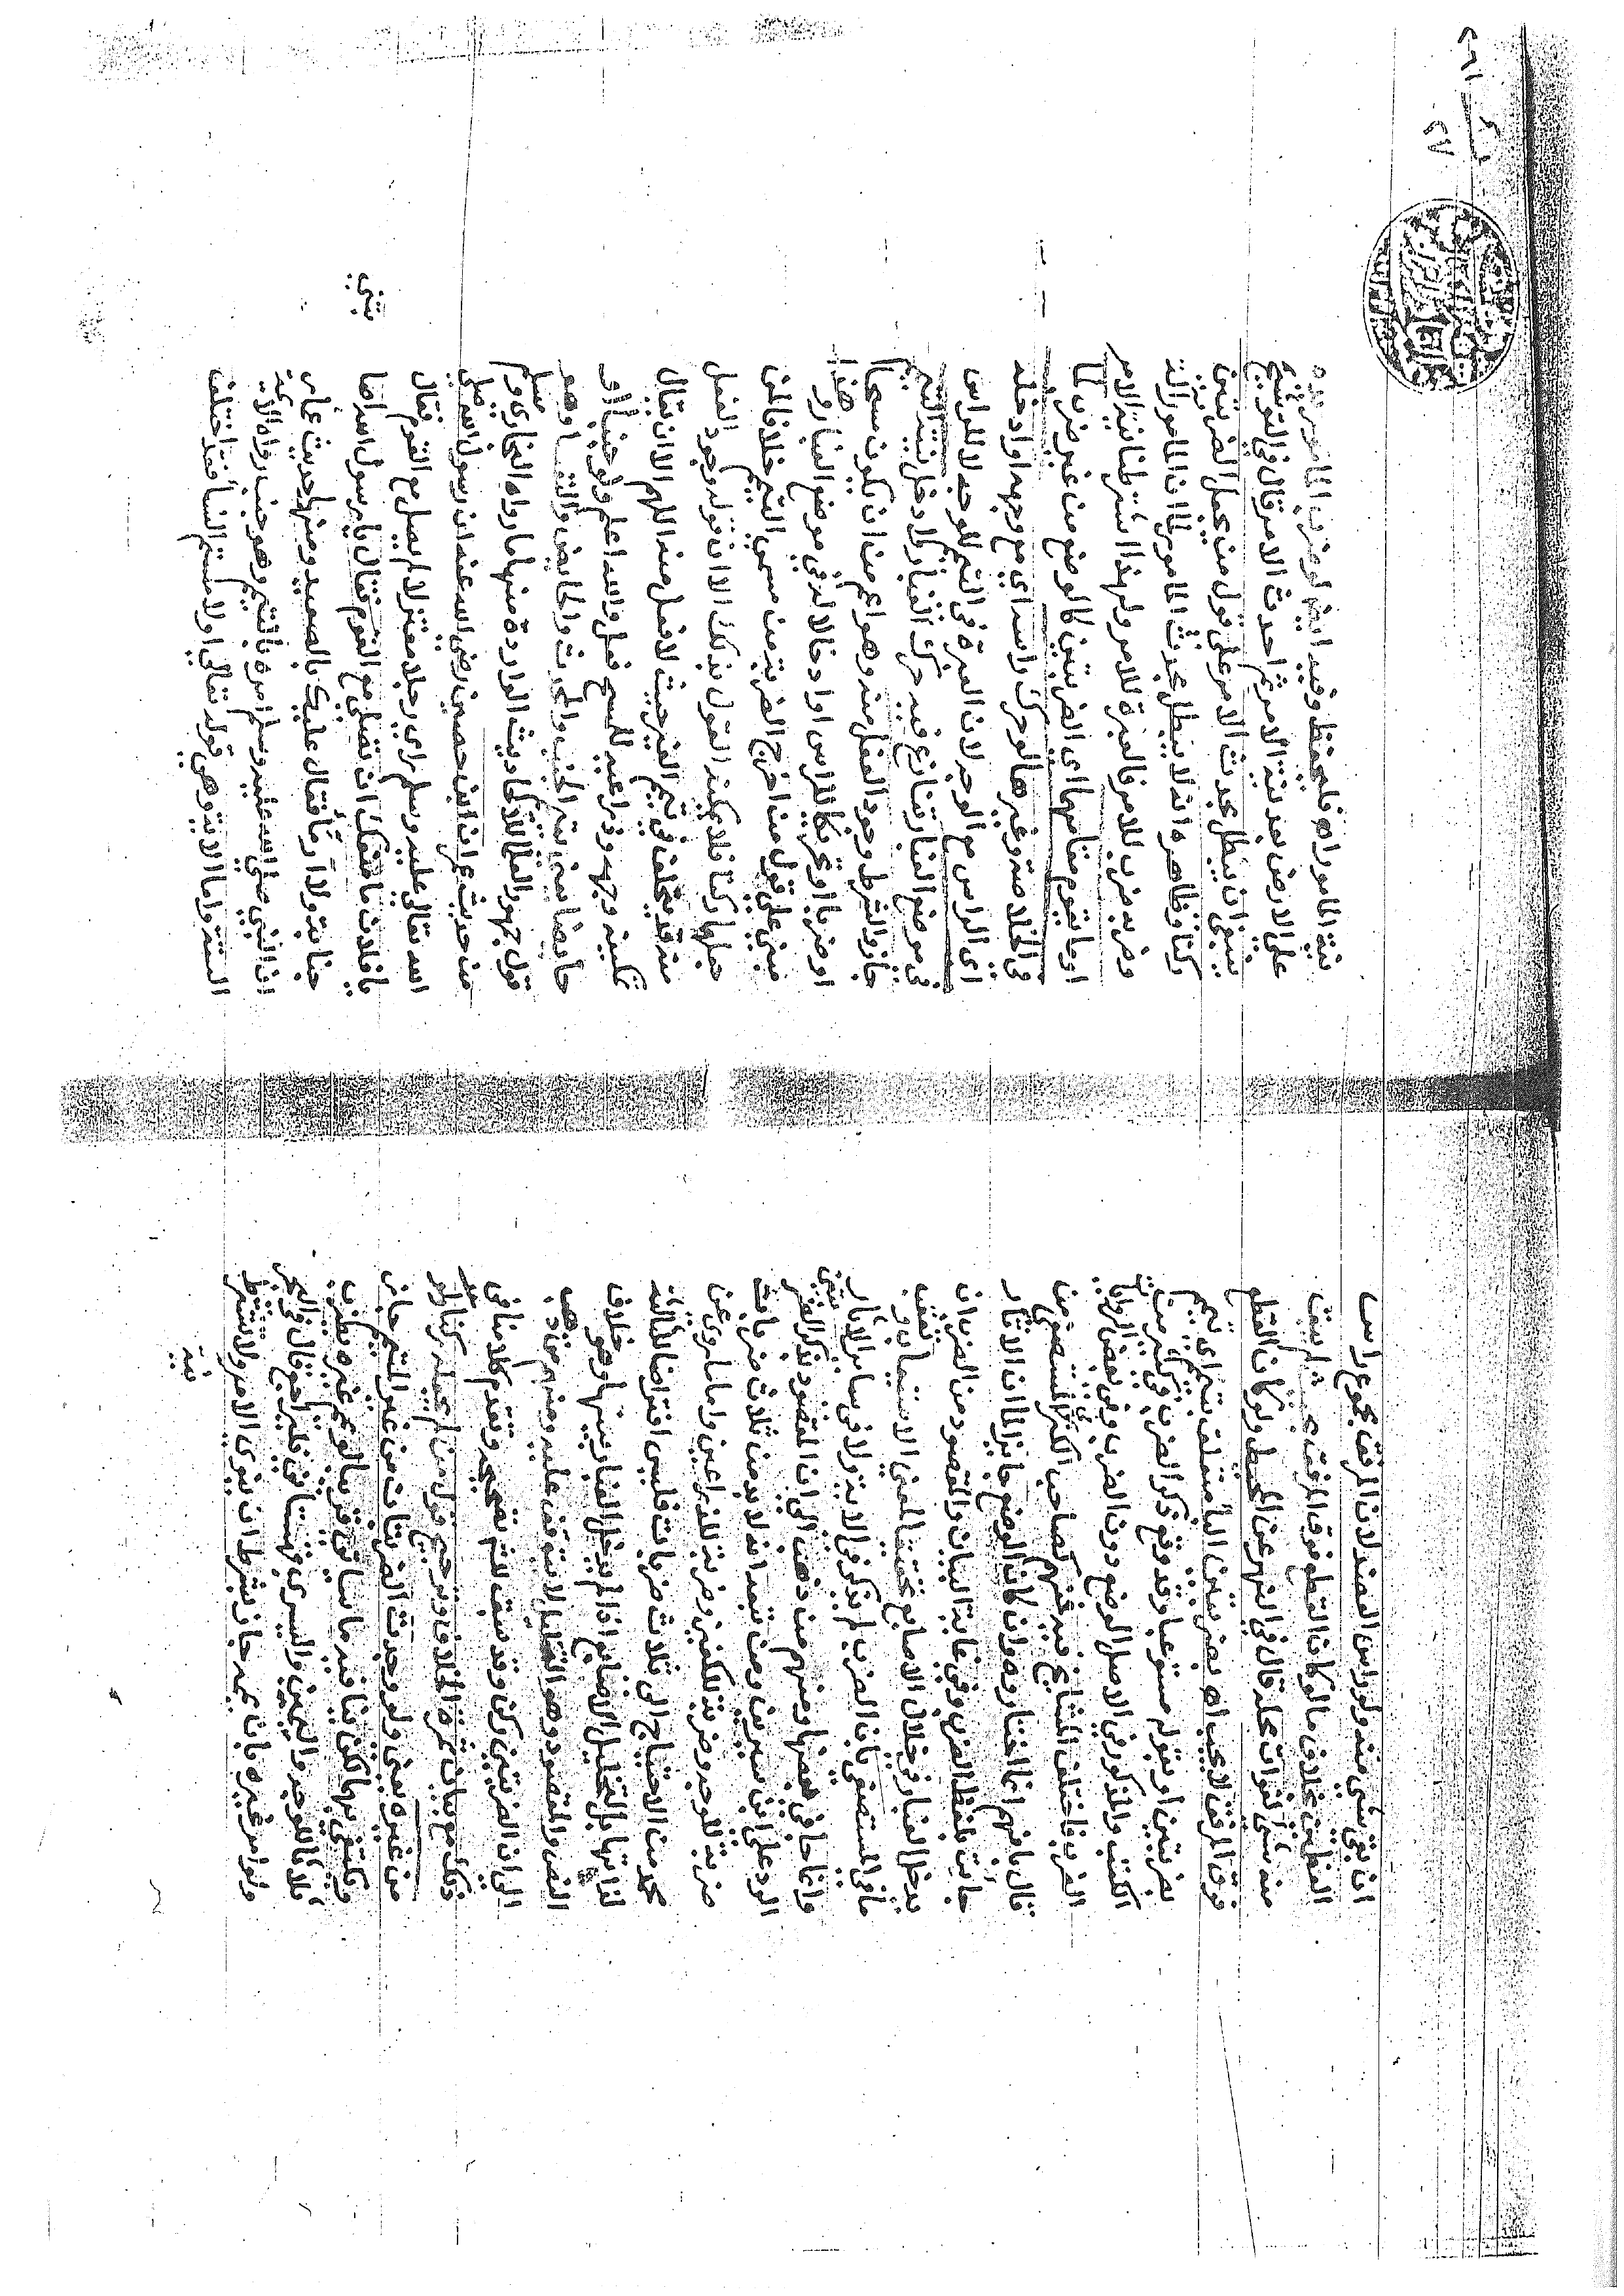 ان بقي شيء منه ولو راس العضد لان المرفق مجموع راس
العظمين بخلاف ما لو كان القطع فوق المرفق بحيث لم يبق
منه شيء لفوات محله قال في النهر عن المحيط ولو كان القطع
فوق المرفق لا يجب اه بضربتين الباء متعلق بتيمم اي تيمم
بضربتين او بقوله مستوعبا وقد وقع ذكر الضرب في كثير من
الكتب والمذكور في الاصل الوضع دون الضرب وفي بعض الروايات
الضرب فاختلف المشايخ فيه فمنهم كصاحب المستصفى من
قال بافهم انما اختاروه وان كان الوضع جايزا لما ان الاثار
جاءت بلفظ الضرب وفي غاية البيان والمقصود من الضرب ان
يدخل الغبار في خلال الاصابع تحقيقا لمعنى الاستيعاب وتعقب
ما في المستصفى بان الضرب لم يذكر في الاية ولا في سائر الاثار
وانما جاء في بعضها ومنهم من ذهب الى ان المقصود بذكر الضربتين
الرد على ابن سيرين ومن تبعه انه لا بد من ثلاث ضربات
ضربة للوجه وضربة للكفين وضربة للذراعين واما ما روي عن
محمد من الاحتياج الى ثلاث ضربات فليس افتراضا للثالثة
لذاتها بل لتخليل الاصابع اذا لم يدخل الغبار بينها وهو خلاف
النص والمقصود وهو التخليل لا يتوقف عليه ومنهم من ذهب
الى ان الضربتين ركن وقد سبق لك تصحيحه وتقدم كلامنا في
ذلك مع بيان ثمرة الخلاف وترجيح قول من لم يجعله ركنا ولو
من غيره يعني ولو وجدت الضربتان من غير المتيمم جاز
ويكتفى بهما لكن ينافيه ما سياتي قريبا لو يمم غيره يضرب
ثلاثا للوجه واليمين واليسرى قهستاني فليراجع قال في البحر
ولو امر غيره بان ييممه جاز بشرط ان ينوي الامر ولا تشترط
نية
نية المامور اه فليحفظ وفيه ايضا لو ضرب المامور يده
على الارض بعد نية الامر ثم احدث الامر قال في التوشيح
ينبغي ان يبطل بحدث الامر على قول من يجعل الضربتين
ركنا وظاهره انه لا يبطل بحدث المامور لما ان المامور الة
وضربه ضرب للامر فالعبرة للامر ولهذا اشترطنا نية الامر
او ما يقوم مقامهما اي الضربتين كالوضع من غير ضرب لما
في الخلاصة وغيرها لو حرك راسه اي مع وجهه او ادخله
اي الراس مع الوجه لان العبرة في التيمم للوجه لا للراس
في موضع الغبار تنازع فيه حرك الغبار ولا دخل بنية التيمم
جاز والشرط وجود الفعل منه وهو اعم من ان يكون مسحا
او ضربا او تحريكا للراس او ادخالا له في موضع الغبار وهذا
مبني على قول من اخرج الضربة من مسمى التيمم خلافا لمن
جعلها ركنا فلا يمكنه القول بذلك الا ان قوله وجود الفعل
منه قد يختلف في تيمم الغير حيث لا فعل منه اللهم الا ان يقال
تمكينه وجهه وذراعيه للمسح فعل والله اعلم ولو جنبا او
حايضا يعني يتيمم الجنب والمحدث والحايض والنفساء وهو
قول جمهور العلما للاحاديث الواردة منها ما رواه البخاري ومسلم
من حديث عمران ابن حصين رضي الله عنه ان رسول الله صلى
الله تعالى عليه وسلم راى رجلا معتزلا لم يصل مع القوم فقال
يا فلان ما منعك ان تصلي مع القوم فقال يا رسول الله اصا
بتني جنابة ولا ماء فقال عليك بالصعيد ومنها حديث عمار
ان النبي صلى الله عليه وسلم امره بالتيمم وهو جنب رواه الايمة
الستة واما الاية وهي قوله تعالى او لامستم النساء فقد اختلفت